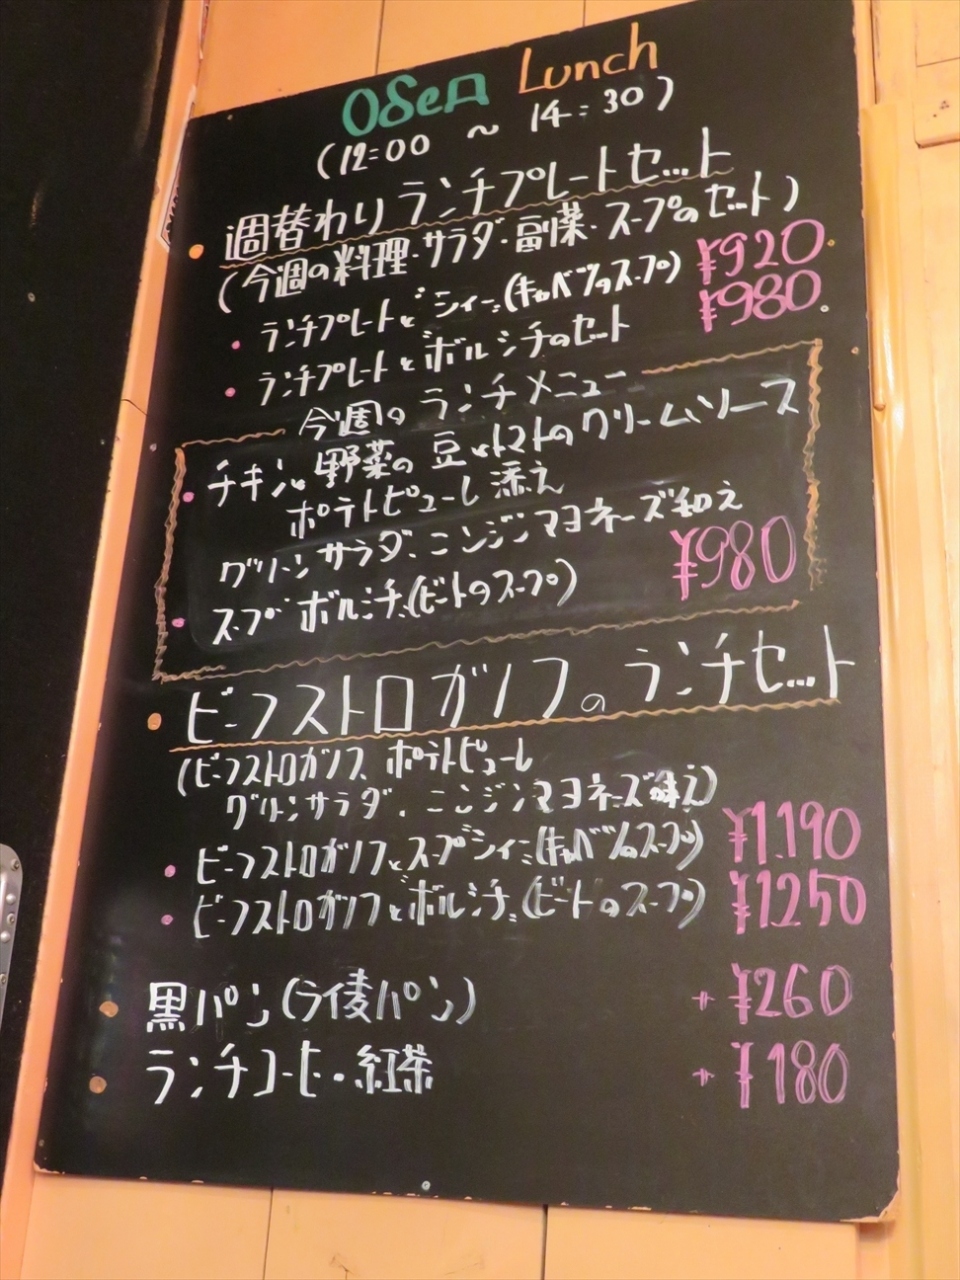 Обед Lunch
(12:00 ~ 14:30)
週替わりランチプレートセット
(今週の料理・サラダ・副菜・スープのセット)
・ランチプレートとシィー(キャベツのスープ) ¥920
・ランチプレートとボルシチのセット ¥980
今週のランチメニュー
・チキンと野菜の豆とトマトのクリームソース
ポテトピューレ添え
グリーンサラダ、ニンジンマヨネーズ和え
・スープ ボルシチ(ビートのスープ) ¥980
・ビーフストロガノフのランチセット
(ビーフストロガノフ、ポテトピューレ
グリーンサラダ、ニンジンマヨネーズ和え)
・ビーフストロガノフとスープシィー(キャベツのスープ) ¥1190
・ビーフストロガノフとボルシチ(ビートのスープ) ¥1250
・黒パン(ライ麦パン) + ¥260
・ランチコーヒー・紅茶 + ¥180